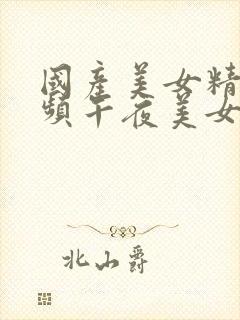 國產美女精
頻午夜美女
北山爵